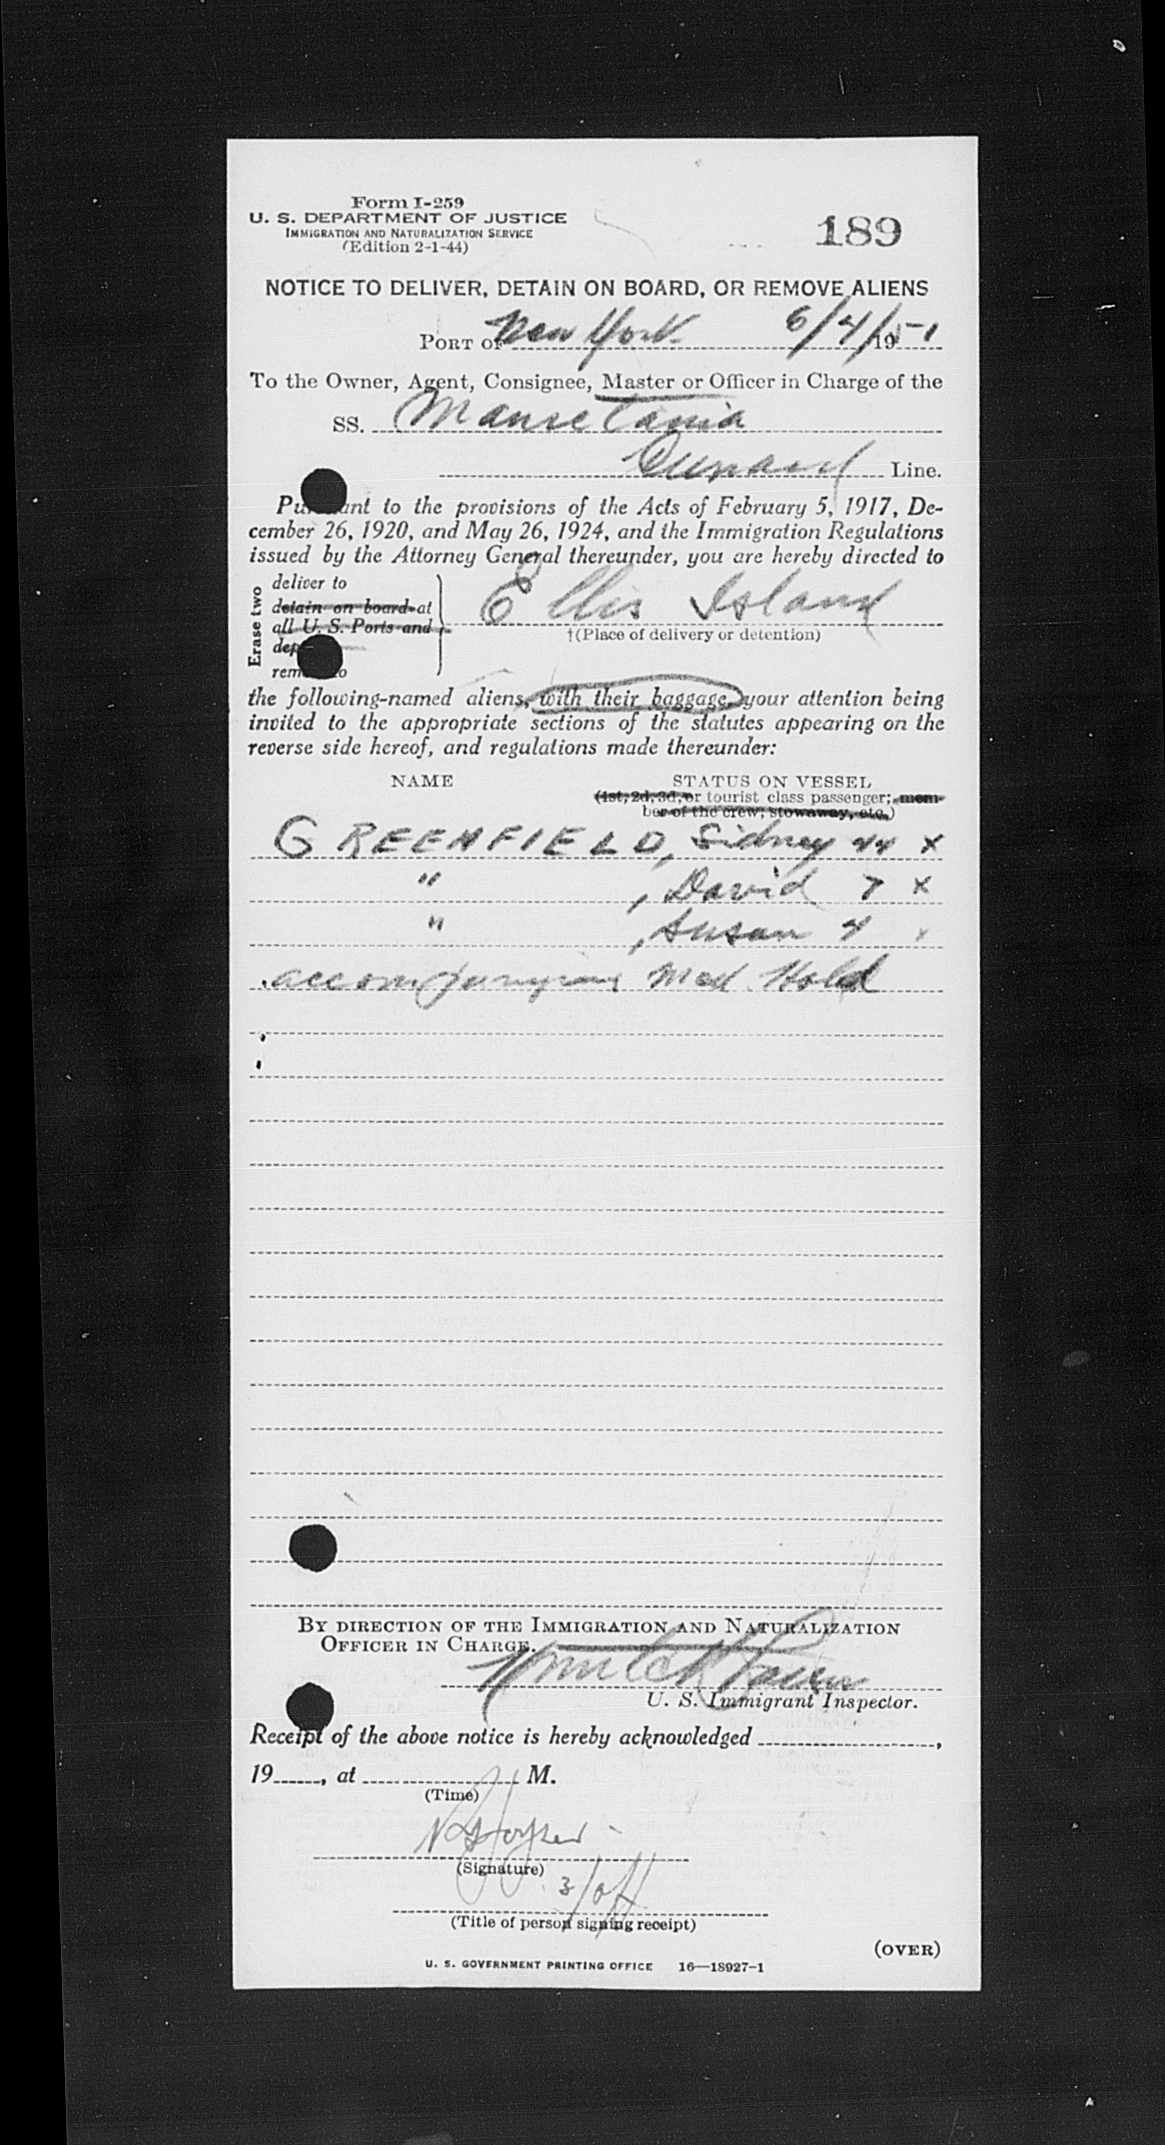 Form I-259
U. S. DEPARTMENT OF JUSTICE
IMMIGRATION AND NATURALIZATION SERVICE
(Edition 2-1-44)
189
NOTICE TO DELIVER, DETAIN ON BOARD, OR REMOVE ALIENS
PORT OF New York 6/4/1951
To the Owner, Agent, Consignee, Master or Officer in Charge of the
SS. Mauretania
Cunard Line.
Pursuant to the provisions of the Acts of February 5, 1917, De-
cember 26, 1920, and May 26, 1924, and the Immigration Regulations
issued by the Attorney General thereunder, you are hereby directed to
Erase two
deliver to
detain on board at
all U. S. Ports and
dep
remove to
Ellis Island
†(Place of delivery or detention)
the following-named aliens, with their baggage, your attention being
invited to the appropriate sections of the statutes appearing on the
reverse side hereof, and regulations made thereunder:
NAME STATUS ON VESSEL
(1st, 2d, 3d, or tourist class passenger; mem-
ber of the crew; stowaway, etc.)
GREENFIELD, Sidney 44 X
" , David 7 X
" , Susan 4 x
accompanying Med Hold
BY DIRECTION OF THE IMMIGRATION AND NATURALIZATION
OFFICER IN CHARGE.
U. S. Immigrant Inspector.
Receipt of the above notice is hereby acknowledged ,
19 , at M.
(Time)
(Signature)
3/off
(Title of person signing receipt)
(OVER)
U. S. GOVERNMENT PRINTING OFFICE 16—18927-1